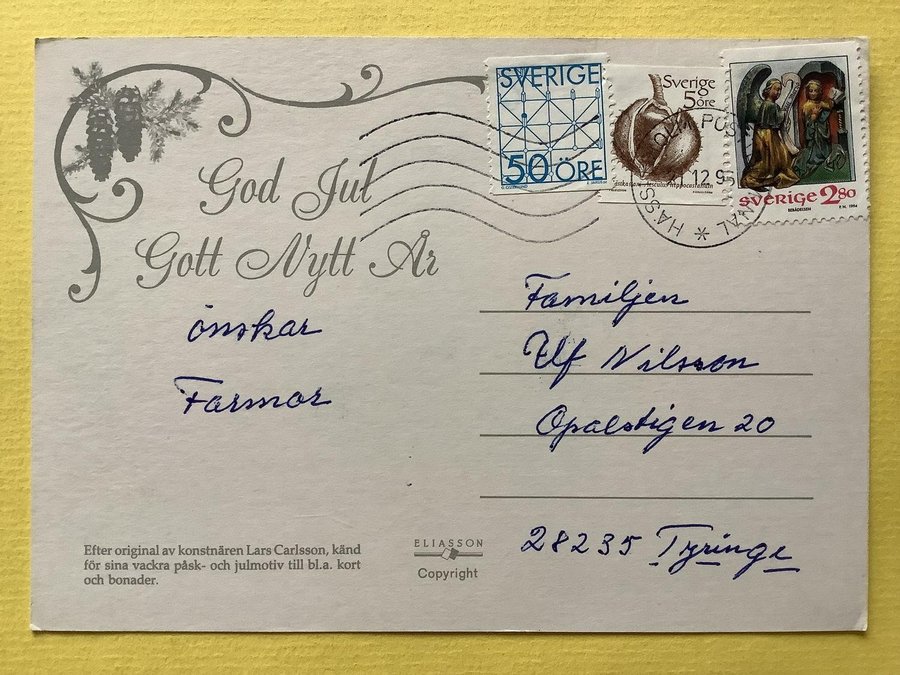 God Jul
Gott Nytt År
önskar
Farmor
Efter original av konstnären Lars Carlsson, känd
för sina vackra påsk- och julmotiv till bl.a. kort
och bonader.
ELIASSON
Copyright
SVERIGE
50 ÖRE
Sverige
5 öre
Aesculus hippocastanum
SVERIGE 2.80
BEBÅDELSEN
1994
POST
12 9
HÄSS
Familjen
Ulf Nilsson
Opalstigen 20
28235 Tyringe